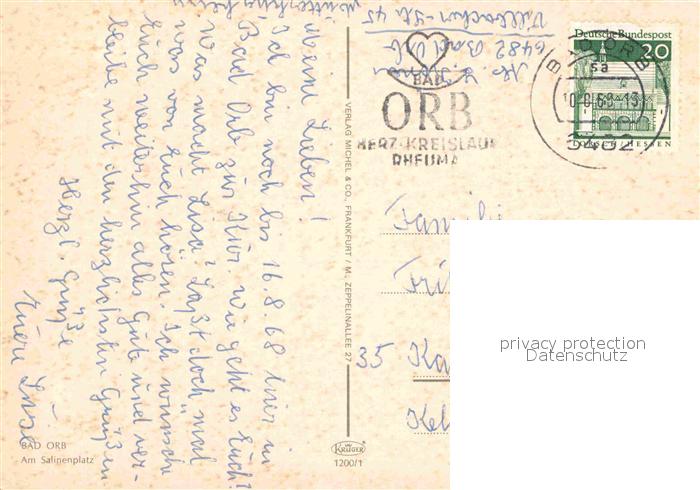 Meine Lieben!
Ich bin noch bis 16.8.68 hier in
Bad Orb zur Kur. Wie geht es Euch?
Was macht Lisa? Laßt doch mal
was von Euch hören. Ich wünsche
Euch weiterhin alles Gute und ver-
bleibe mit den herzlichsten Grüßen
Herzl. Grüße
Eure
BAD ORB
Am Salinenplatz
VERLAG MICHEL & CO., FRANKFURT / M., ZEPPELINALLEE 27
KRÜGER
1200/1
6482 Bad Orb
BAD
ORB
HERZ-KREISLAUF
RHEUMA
Deutsche Bundespost
20
LORSCH / HESSEN
BAD ORB
sa
6482
Familie
35 Ka
privacy protection
Datenschutz